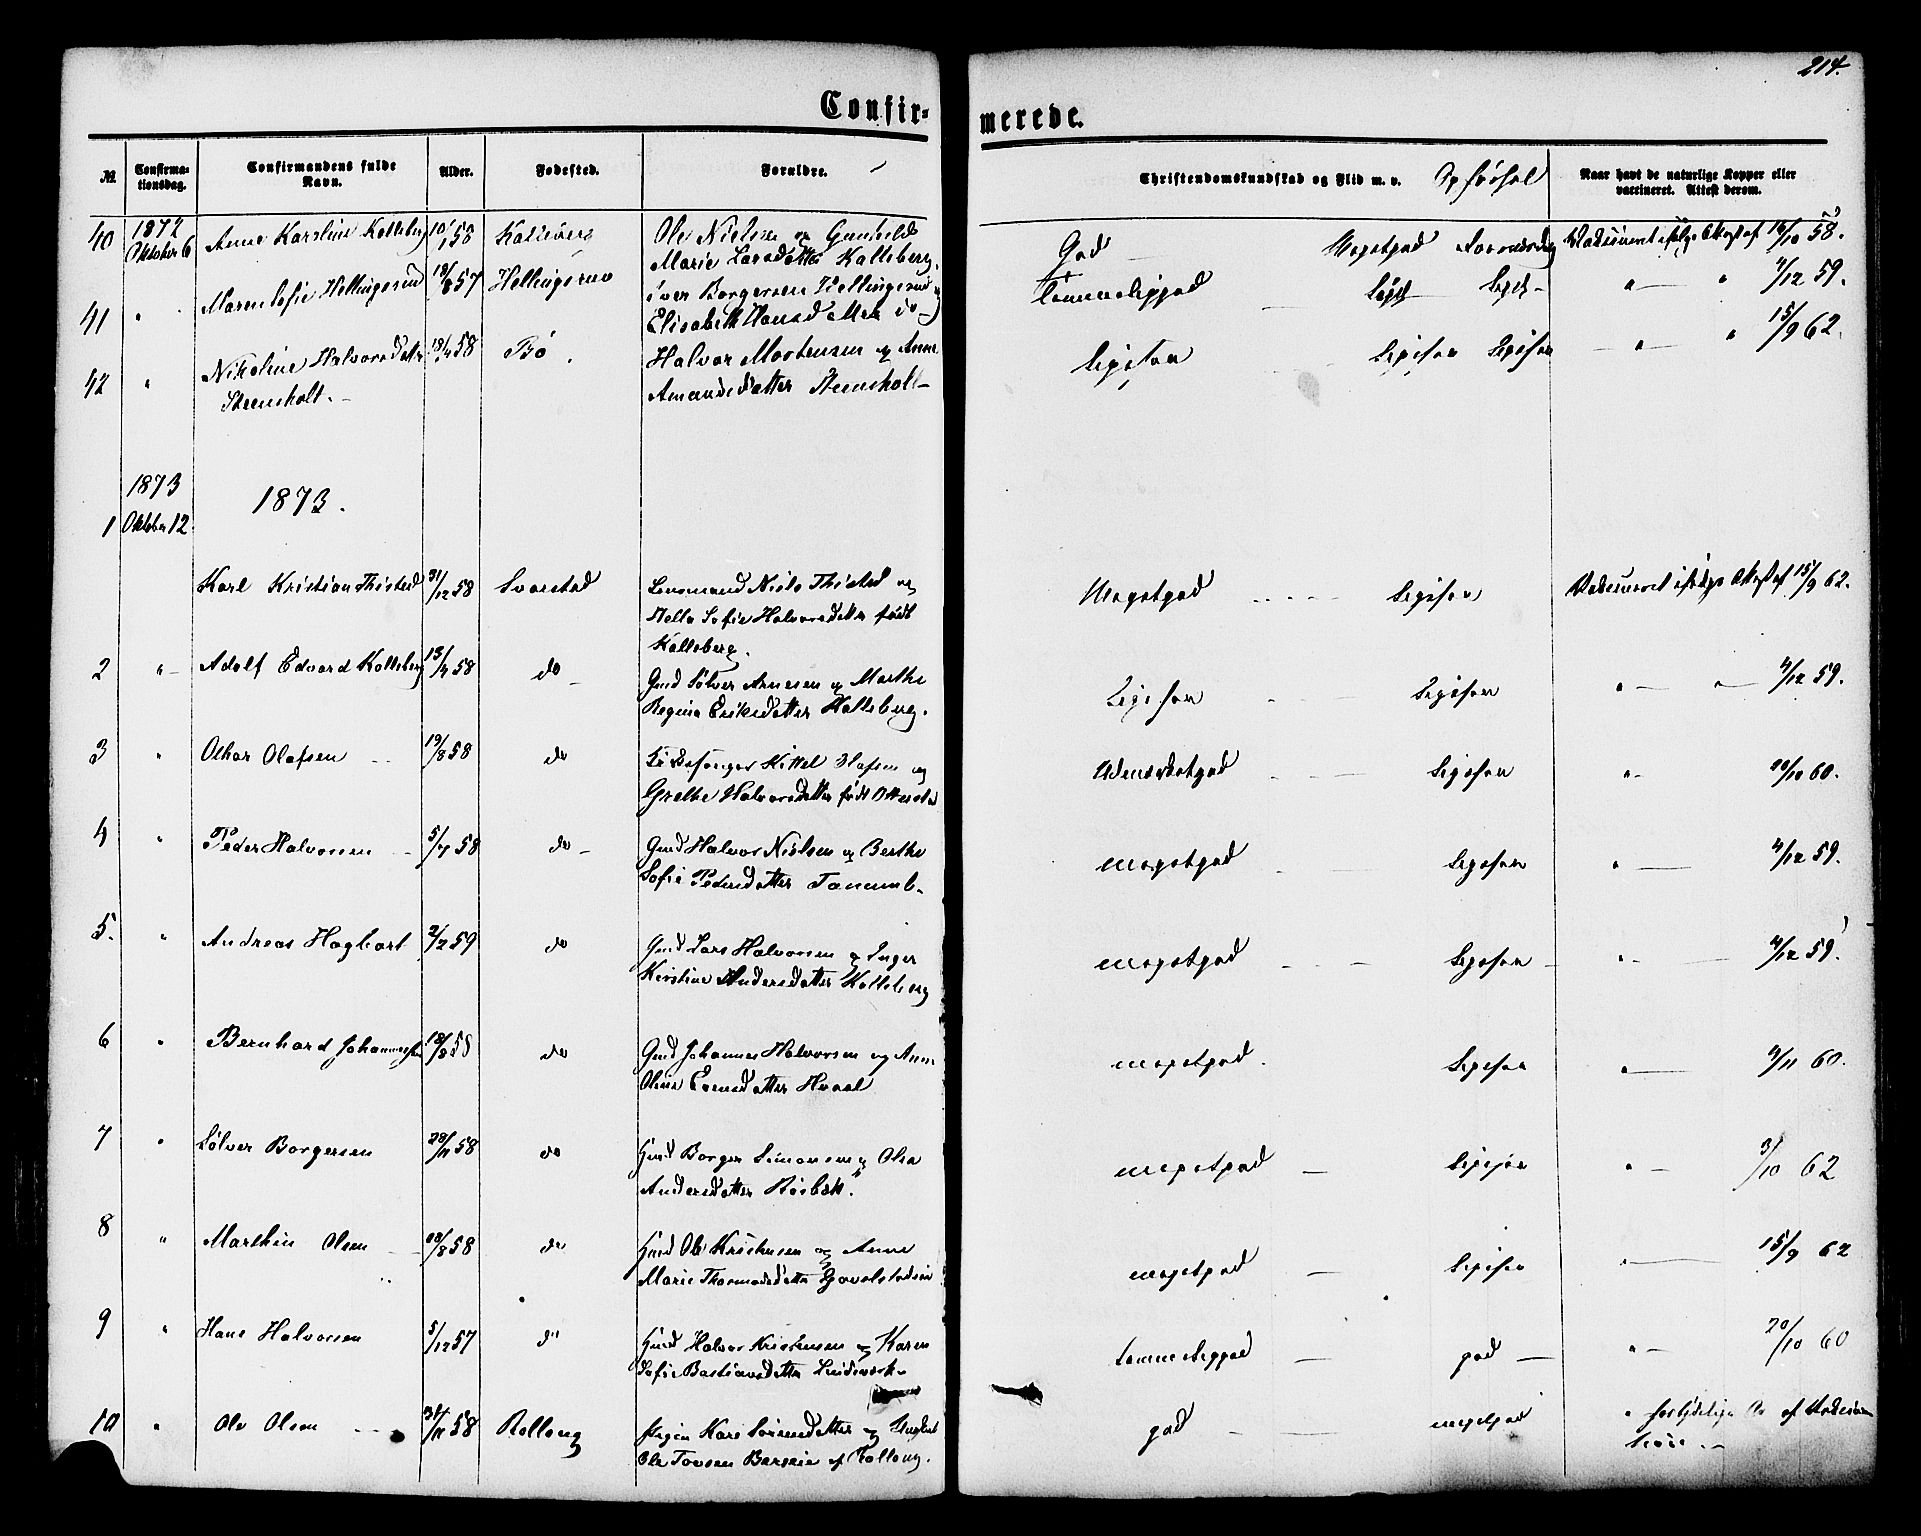 214.
Confir-
merede.
№
Confirma-
tionsdag.
Confirmandens fulde
Navn.
Alder.
Fødested.
Forældre.
Christendomskundskab og Flid m. v. Opførsel
Naar havt de naturlige Kopper eller
vaccineret. Attest derom.
40 1872
Oktober 6 Anne Karoline Kolleberg 10/1 58 Kolleberg Ole Nielsen og Gunhild
Marie Larsdatter Kolleberg.
God Meget god 16/10 58.
41 " Maren Sofie Hellingsrud 18/8 57 Hellingsrud Iver Borgersen Hellingsrud og
Elisabeth Hansdatter do
Temmelig god 4/12 59.
42 " Nikoline Halvorsdatter 18/4 58 Bø. Halvor Mortensen og Anne
Steensholt. Amundsdatter Steensholt
Ligesaa Ligesaa Ligesaa " 15/9 62.
1873
1 Oktober 12. 1873.
Karl Kristian Thisted 31/12 58 Svarstad Lensmand Niels Thisted og
Sofie Halvorsdatter født
Kolleberg.
Meget god Ligesaa 15/9 62.
2 " Adolf Edvard Kolleberg 13/4 58 do Gmd Sølver Arnesen og Marthe
Regine Eriksdatter Kolleberg.
Ligesaa Ligesaa " " 4/12 59.
3 " Othar Olafsen 19/8 58 do Kirkesanger Kittel Olafsen og
Grethe Halvorsdatter født
Ligesaa " 10 60.
4 " Peder Halvorsen 5/7 58 do Gmd Halvor Nielsen og Berthe
Sofie Pedersdatter
Meget god Ligesaa " 4/12 59.
5. " Andreas Hagbart 2/2 59 do Gmd Lars Halvorsen og Inger
Kirstine Andersdatter Kolleberg
Meget god Ligesaa " 4/12 59.
6 " Bernhard Johannessen 18/8 58 do Gmd Johannes Halvorsen og Anne
Oline
meget god. Ligesaa " 4/11 60.
7 " Sølver Borgersen 28/11 58 do Gmd Borger Simonsen og Olea
Andersdatter Bøsbæk.
meget god Ligesaa " 3/10 62
8 " Marthin Olsen 58 do Gmd Ole Kristensen og Anne
Marie Thormodsdatter
meget god Ligesaa " 15/9 62
9 " Hans Halvorsen 5/12 57 do Gmd Halvor Kristensen og Karen
Sofie Bastiansdatter
temmelig god god " 20/10 60
10 " Ole Olsen 58 Rollong Pigen Kari Sørensdatter og Ungkarl
Ole Tovsen af Rollong.
god meget god "